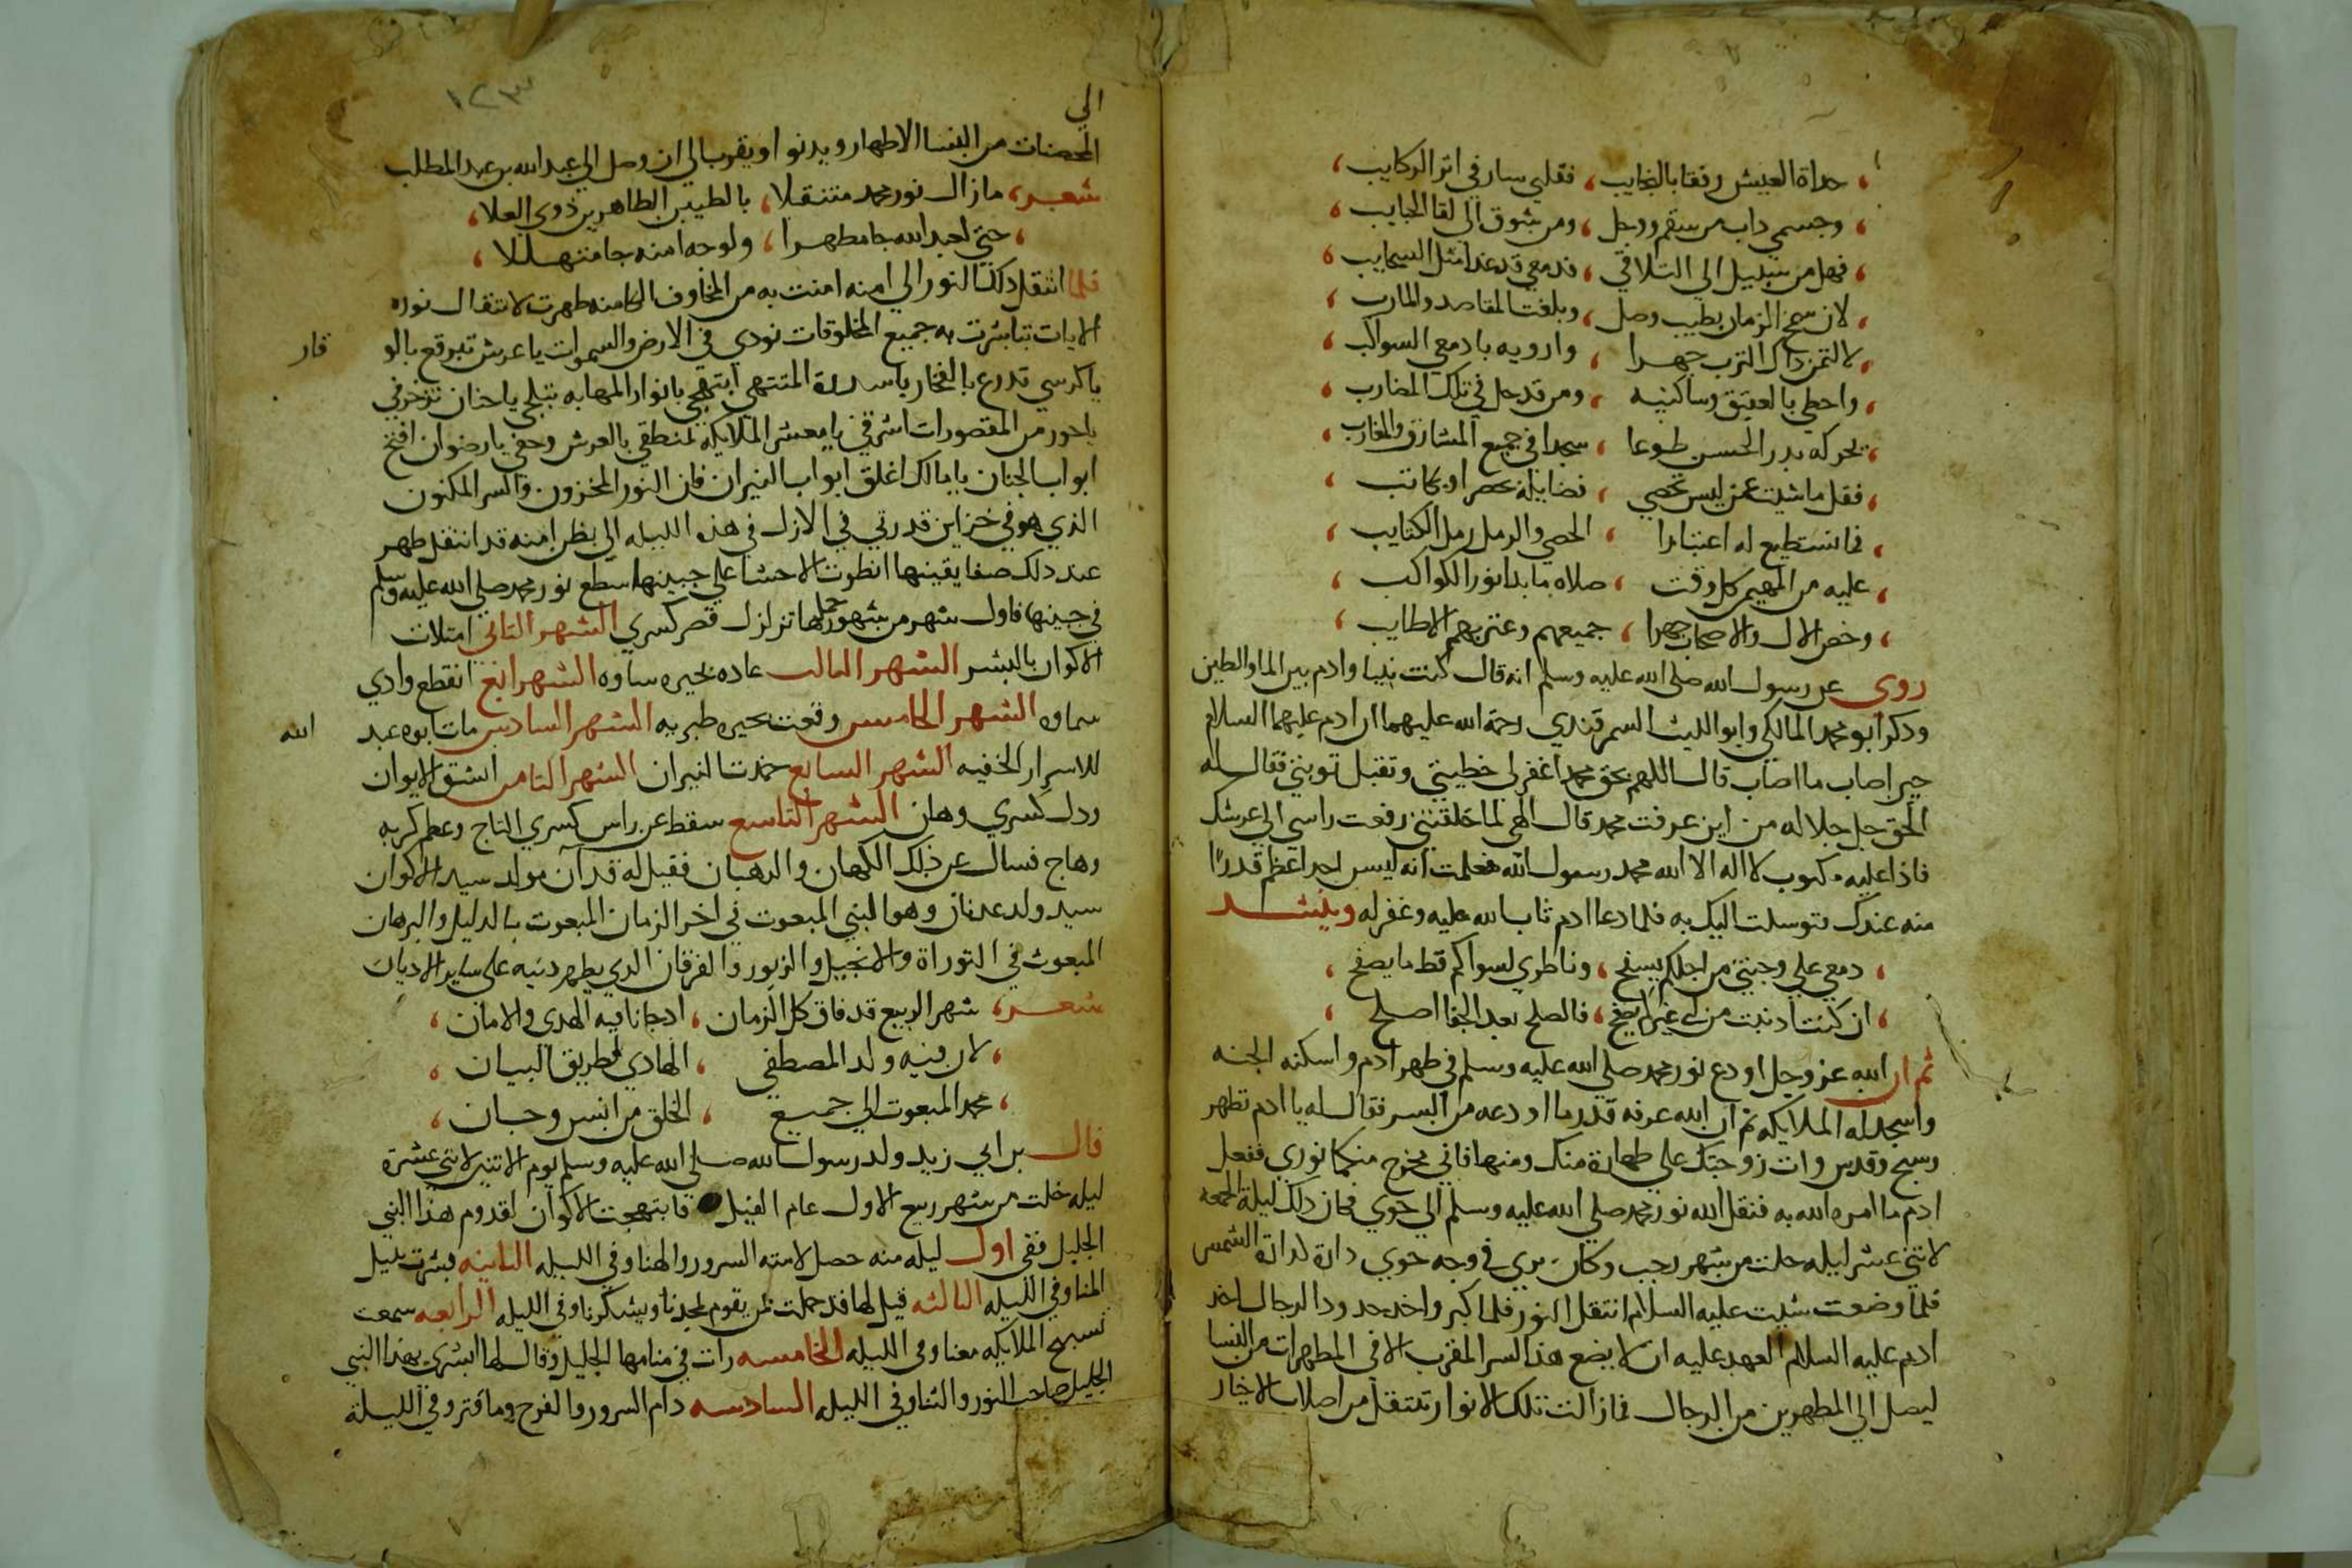 حداة العيس رفقا بالنجايب ، فقلبي سار في اثر الركايب ،
وجسمي داب من سقم ووجل ، ومن شوق الى لقا الحبايب ،
فهل من سبيل الي التلاقي ، فدمعي قد غدا مثل السحايب ،
لان سمح الزمان بطيب وصل ، وبلغت المقاصد والمارب ،
لالتمن ذاك الترب جهرا ، وارويه بادمعي السواكب ،
واحظي بالعقيق وساكنيه ، ومن قد حل في تلك المضارب ،
يحر كه بدر الحسن طوعا ، سجدا في جميع المشارق والمغارب ،
فقل ما شيت عمن ليس تحصي ، فضايله بحصر او بكاتب ،
فما نستطيع له اعتبارا ، الحصي والرمل رمل الكتايب ،
عليه من المهيمن كل وقت ، صلاه ما بدا نور الكواكب ،
وخص الال والاصحاب جهرا ، جميعهم وعترتهم الاطايب ،
روي عن رسول الله صلي الله عليه وسلم انه قال كنت نبيا وادم بين الما والطين
ودكر ابو محمد المالكي وابو الليث السمرقندي رحمة الله عليهما ان ادم عليهما السلام
حين اصاب ما اصاب قال اللهم بحق محمد اغفر لي خطيتي وتقبل توبتي فقال له
الحق جل جلاله من اين عرفت محمد قال الهي لما خلقتني رفعت راسي الي عرشك
فاذا عليه مكتوب لا اله الا الله محمد رسول الله فعلمت انه ليس احدا اعظم قدرًا
منه عندك فتوسلت اليك به فلما دعا ادم تاب الله عليه وغفر له وينشد
دمعي علي وجنتي من اجلكم يسفح ، وناظري لسواكم قط ما يصفح ،
ان كنت ادنبت من لي غيركم يصفح ، فالصلح بعد الجفا اصلح ،
ثم ان الله عز وجل اودع نور محمد صلي الله عليه وسلم في ظهر ادم واسكنه الجنه
واسجد له الملايكه ثم ان الله عرفه قدر ما اودعه من السر فقال له يا ادم تطهر
وسبح وقدس وات زوجتك علي طهارة منك ومنها فاني مخرج منكما نوري ففعل
ادم ما امره الله به فنقل الله نور محمد صلي الله عليه وسلم الي حوي فكان دلك ليلة الجمعه
لاثني عشر ليله خلت من شهر رجب وكان يري في وجه حوي دارة كدارة الشمس
فلما وضعت شيت عليه السلام انتقل النور فلما كبر واخد حدود الرجال اخد
ادم عليه السلام العهد عليه ان لا يضع هذا السر المقرب الا في المطهرات من النسا
ليصل الي المطهرين من الرجال فما زالت تلك الانوار تنتقل من اصلاب الاخيار
١٢٣
الي
المحصنات من النسا الاطهار ويدنو او يقرب الي ان وصل الي عبد الله بن عبد المطلب
شعر ، ما زال نور محمد متنقلا ، بالطيبين الطاهرين ذوي العلا ،
حتي لعبد الله جا مطهرا ، ولوجه امنه جا متهللا ،
فلما انتقل دلك النور الي امنه امنت به من المخاوف الكامنه ظهرت لانتقال نوره
الايات تباشرت به جميع المخلوقات نودي في الارض والسموات يا عرش تبرقع بالو
قار
يا كرسي تدرع بالفخار يا سدرة المنتهي ابتهجي بانوار المهابه تبلجي يا جنان تزخرفي
يا حور من المقصورات اشرقي يا معشر الملايكه تمنطقي بالعرش وحفي يا رضوان افتح
ابواب الجنان يا مالك اغلق ابواب النيران فان النور المخزون والسر المكنون
الذي هو في خزاين قدرتي في الازل في هذه الليله الي بطن امنه قد انتقل ظهر
عند دلك صفا يقينها انطوت الاحشا علي جبينها سطع نور محمد صلي الله عليه وسلم
في جبينها فاول شهر من شهور حملها تزلزل قصر كسري الشهر التاني امتلات
الاكوان بالبشر الشهر التالت عاده بحيره ساوه الشهر الرابع انقطع وادي
سماوه الشهر الخامس وقعت بحيره طبريه الشهر السادس مات ابوه عبد
الله
للاسرار الخفيه الشهر السابع خمدت النيران الشهر التامن انشق الايوان
ودل كسري وهان الشهر التاسع سقط عن راس كسري التاج وعظم كربه
وهاج فسال عن ذلك الكهان والرهبان فقيل له قد آن مولد سيد الاكوان
سيد ولد عدنان وهو النبي المبعوت في اخر الزمان المبعوت بالدليل والبرهان
المبعوث في التوراة والانجيل والزبور والفرقان الدي يظهر دينه علي ساير الاديان
شعر ، شهر الربيع قد فاق كل الزمان ، اد جانا فيه الهدي والامان ،
لان فيه ولد المصطفي ، الهادي لطريق البيان ،
محمد المبعوت الي جميع ، الخلق من انس وجان ،
قال بن ابي زيد ولد رسول الله صلي الله عليه وسلم يوم الاتنين لاتني عشرة
ليله خلت من شهر ربيع الاول عام الفيل فابتهجت الاكوان لقدوم هذا النبي
الجليل ففي اول ليله منه حصل لامنه السرور والهنا وفي الليله التانيه فبشرت بنيل
المنا وفي الليله التالته قيل لها قد حملت بمن يقوم بحمدنا ويشكرنا وفي الليله الرابعه سمعت
تسبيح الملايكه معنا وفي الليله الخامسه رات في منامها الجليل وقال لها ابشري بهذا النبي
الجليل صاحب النور والثنا وفي الليله السادسه دام السرور والفرح وما فتر وفي الليلة